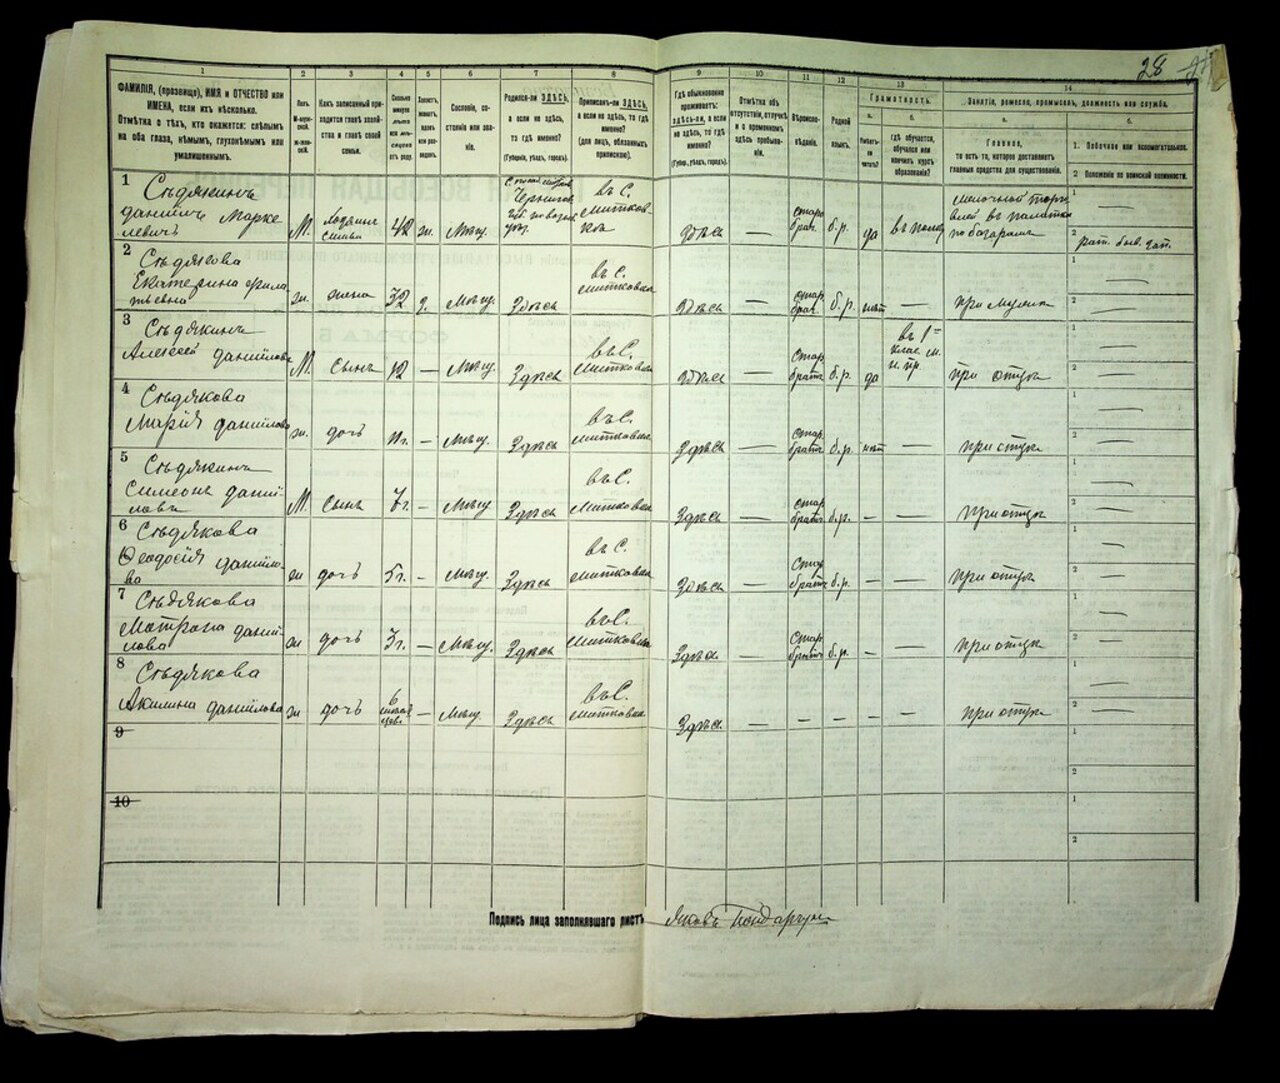 28
1 2 3 4 5 6 7 8 9 10 11 12 13 14
ФАМИЛІЯ, (прозвище), ИМЯ и ОТЧЕСТВО или
ИМЕНА, если ихъ нѣсколько.
Отмѣтка о тѣхъ, кто окажется: слѣпымъ
на оба глаза, нѣмымъ, глухонѣмымъ или
умалишеннымъ.
Полъ.
М-муж-
ской.
Ж-жен-
скій.
Какъ записанный при-
ходится главѣ хозяй-
ства и главѣ своей
семьи.
Сколько
минуло
лѣтъ
или мѣ-
сяцевъ
отъ роду.
Холостъ,
женатъ,
вдовъ
или раз-
веденъ.
Сословіе, со-
стояніе или зва-
ніе.
Родился-ли ЗДѢСЬ,
а если не здѣсь,
то гдѣ именно?
(Губернія, уѣздъ, городъ).
Приписанъ-ли ЗДѢСЬ,
а если не здѣсь, то гдѣ
именно?
(для лицъ, обязанныхъ
припискою).
Гдѣ обыкновенно
проживаетъ:
здѣсь-ли, а если
не здѣсь, то гдѣ
именно?
(Губер., уѣздъ, городъ).
Отмѣтка объ
отсутствіи, отлучкѣ
и о временномъ
здѣсь пребыва-
ніи.
Вѣроиспо-
вѣданіе.
Родной
языкъ.
Грамотность.
а.
Умѣетъ-
ли
читать?
б.
гдѣ обучается,
обучался или
кончилъ курсъ
образованія?
Занятіе, ремесло, промыселъ, должность или служба.
а.
Главное,
то есть то, которое доставляетъ
главныя средства для существованія.
б.
1. Побочное или вспомогательное.
2 Положеніе по воинской повинности.
1
Сѣдякинъ
Даніилъ Марке
левичъ
М.
хозяинъ
семьи
42
ж.
Мѣщ.
въ С.
Митков-
ка
Здѣсь
—
старо
брач.
б.р.
да
мелочной торг
влей въ палатка
по базарамъ
1 —
2
2
Сѣдякова
Екатерина Фила
тьевна
ж.
жена
32
Мѣщ.
Здѣсь
въ С.
Митковка
Здѣсь
—
стар.
б.р.
нѣт
—
при мужѣ
1 —
2 —
3
Сѣдякинъ
Алексѣй Даніилов
М.
сынъ
12
—
Мѣщ.
Здѣсь
въ С.
Митковка
Здѣсь
—
стар.
б.р.
да
въ 1=
клас. м.
н. пр.
при отцѣ
1 —
2 —
4
Сѣдякова
Марія Даніилова
ж.
дочь
11 г.
—
Мѣщ.
Здѣсь
въ С.
Митковка
Здѣсь
—
стар.
б.р.
нѣт
—
при отцѣ
1 —
2 —
5
Сѣдякинъ
Симеонъ Даніи-
ловъ
М.
сынъ
7 г.
—
Мѣщ.
Здѣсь
въ С.
Митковка
Здѣсь
—
стар.
б.р.
—
—
при отцѣ
1 —
2 —
6
Сѣдякова
Ѳеодосія Даніило-
ва
ж
дочь
5 г.
—
Мѣщ.
Здѣсь
въ С.
Митковка
Здѣсь
—
стар.
б.р.
—
—
при отцѣ
1 —
2 —
7
Сѣдякова
Матрона Даніи-
лова
ж
дочь
3 г.
—
Мѣщ.
Здѣсь
въ С.
Митковка
Здѣсь
—
стар.
б.р.
—
—
при отцѣ
1 —
2 —
8
Сѣдякова
Акилина Даніилова
ж
дочь
6
—
Мѣщ.
Здѣсь
въ С.
Митковка
Здѣсь
—
—
—
—
—
при отцѣ
1 —
2 —
9
1
2
10
1
2
Подпись лица заполнявшаго листъ Яковъ